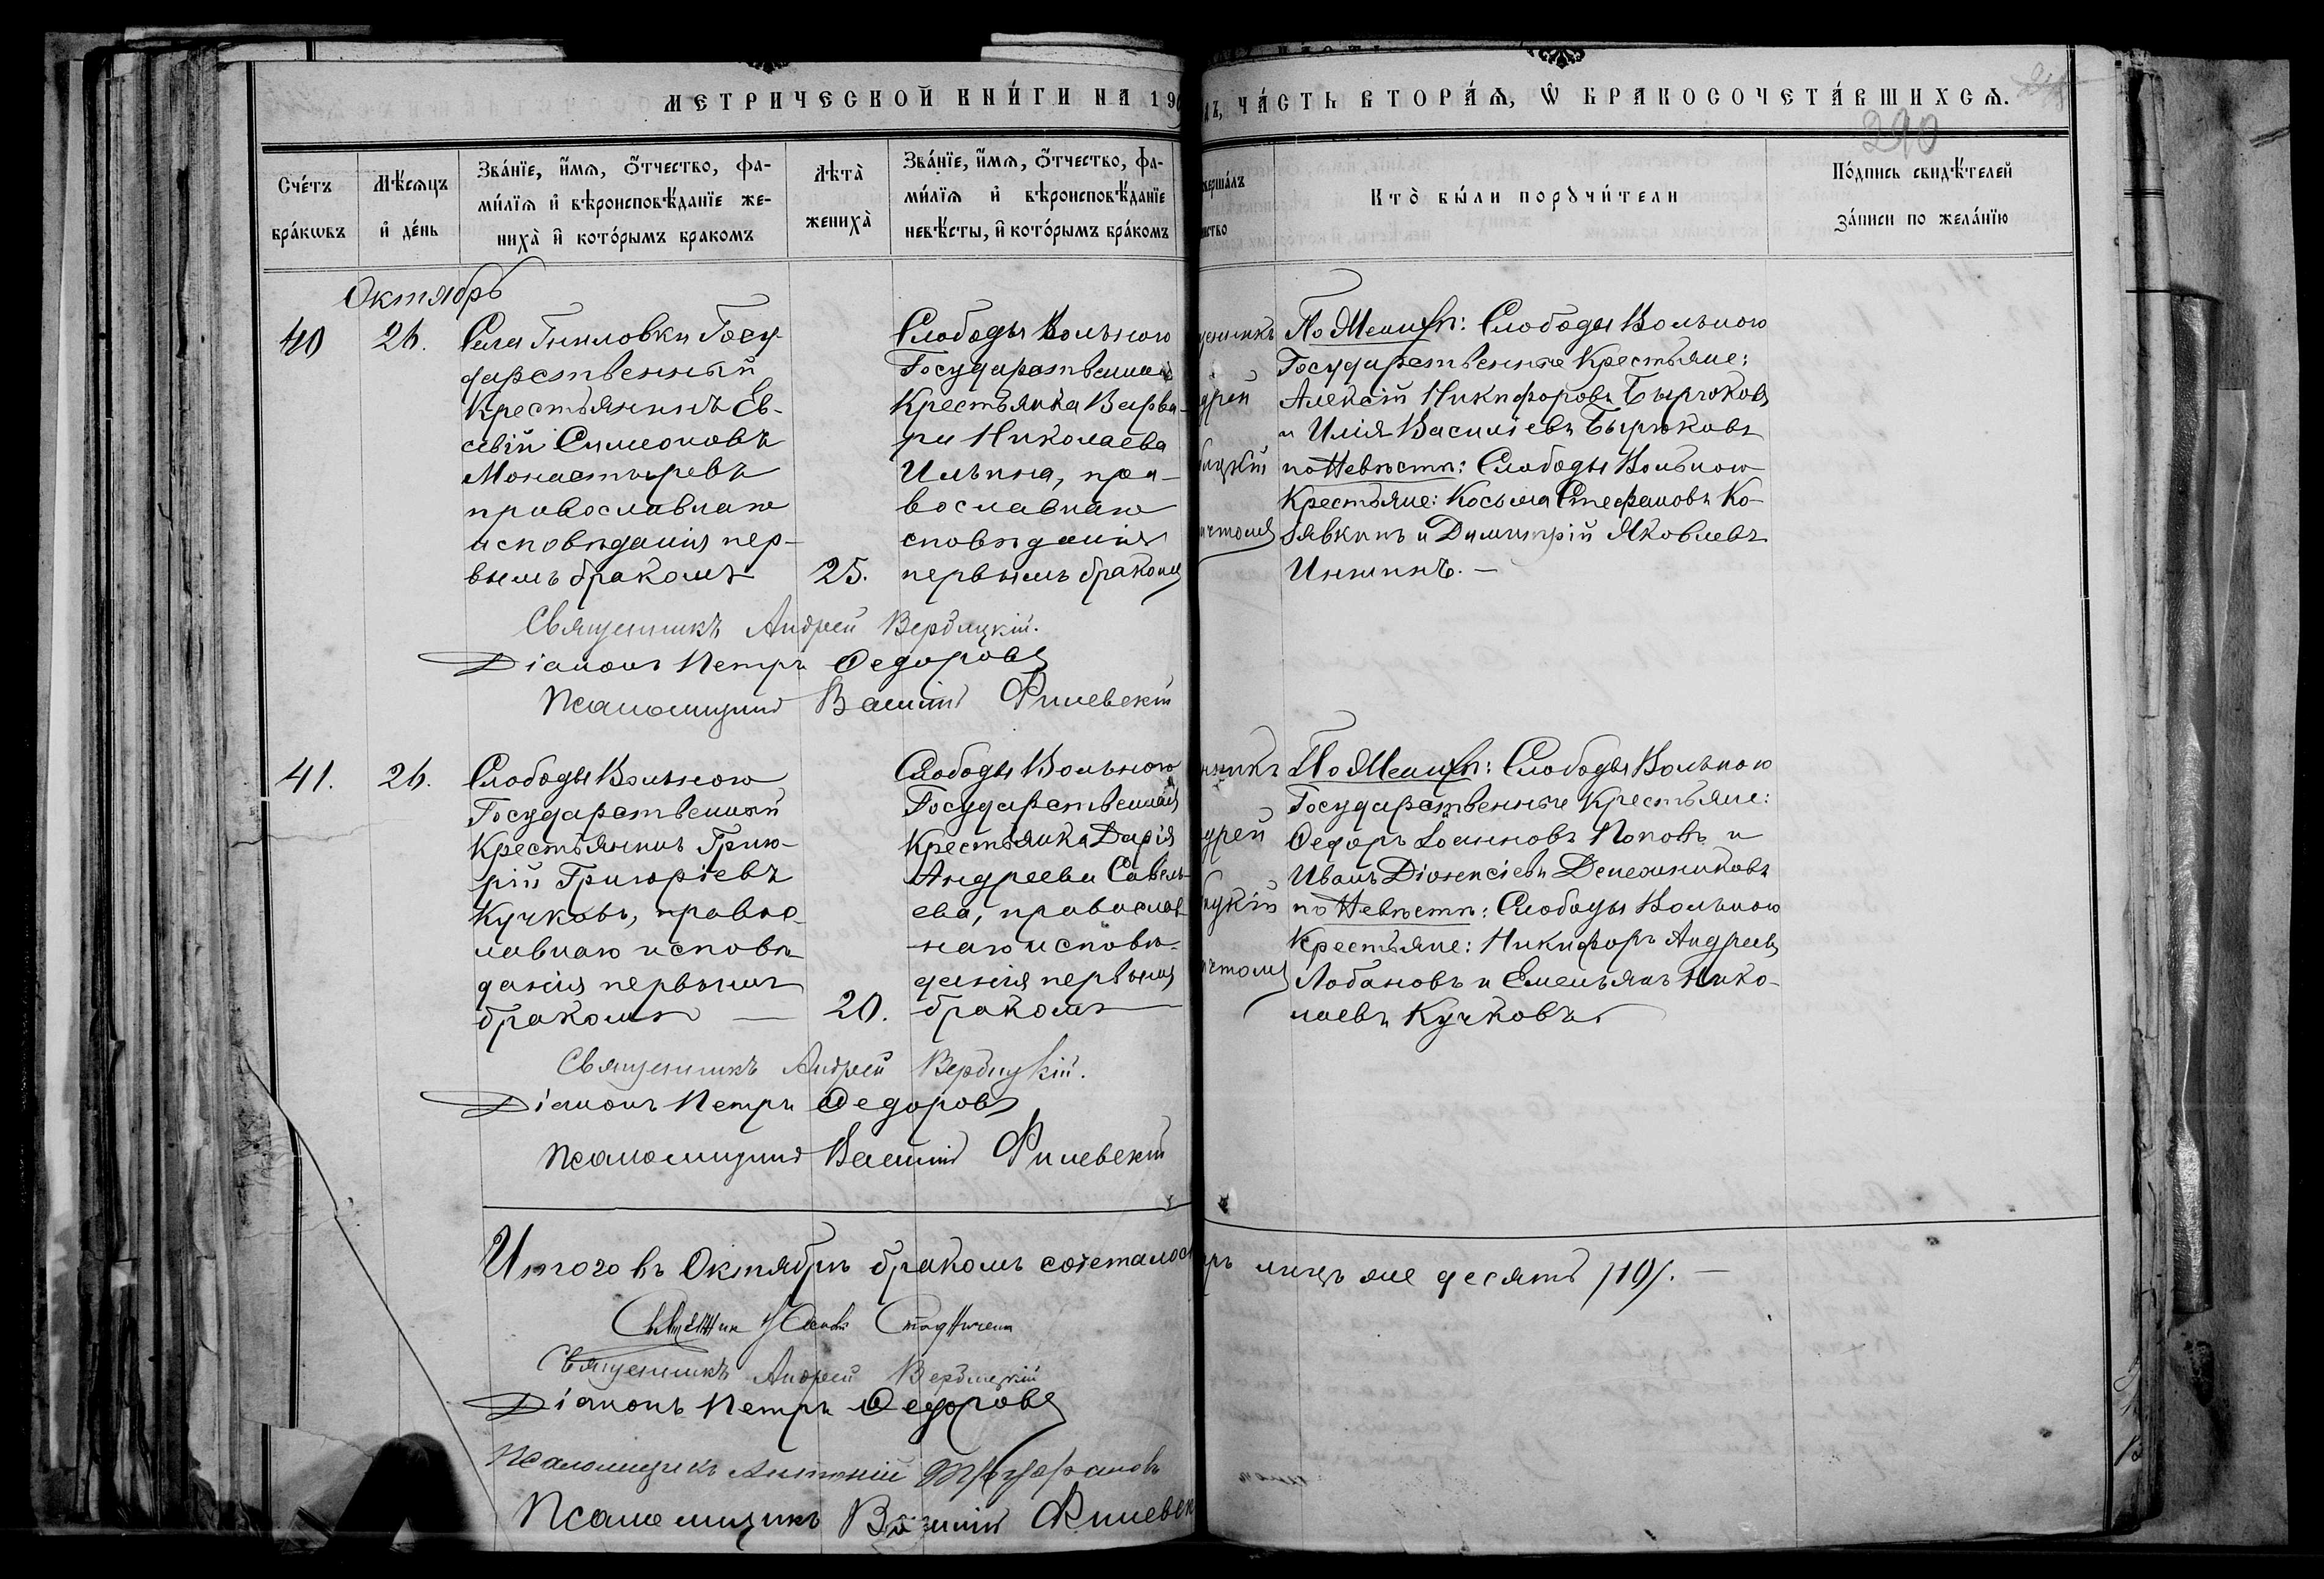 МЕТРИЧЕСКОЙ КНИ́ГИ НА 19
ЧА́СТЬ ВТОРА́Ѧ, Ѡ БРАКОСОЧЕТА́ВШИХСѦ.
290
Сче́тъ бра́кѡвъ
Мѣ́сѧцъ и҆ де́нь
Зва́нїе, и҆́мѧ, ѻ҆́тчество, фа-
ми́лїѧ и҆ вѣроисповѣ́данїе же-
ниха̀ и҆ кото́рымъ бракомъ
Лѣта̀ жениха̀
Зва́нїе, и҆́мѧ, ѻ҆́тчество, фа-
ми́лїѧ и҆ вѣроисповѣ́данїе
невѣ́сты, и҆ кото́рымъ бра́комъ
вершалъ
нство
Кто̀ бы́ли порꙋчи́тели
По́дпись свидѣ́телей
за́писи по жела́нїю
Октябрь
40
26.
Села Гниловки Госу-
дарственный
Крестьянинъ Ев-
севій Симеоновъ
Монастыревъ
православнаго
исповѣданія пер-
вымъ бракомъ
25.
Слободы Вольного
Государственная
Крестьянка Варва-
ра Николаева
Ильина, пра-
вославнаго
сповѣданія
первымъ бракомъ
щенникъ
дрей
бицкій
ичтомъ
По Женихѣ: Слободы Вольного
Государственные Крестьяне:
Алексій Никифоровъ Бырюковъ
и Илія Василіевъ Бырюковъ
по Невѣстѣ: Слободы Вольного
Крестьяне: Косьма Стефановъ Ко-
зявкинъ и Димитрій Яковлевъ
Иншинъ. —
Священникъ Андрей Вербицкій.
Діаконъ Петръ Ѳедоровъ
Псаломщикъ Василій Филевскій
41.
26.
Слободы Вольного
Государственный
Крестьянинъ Григо-
рій Григоріевъ
Кучковъ, правос-
лавнаго исповѣ-
данія первымъ
бракомъ —
20.
Слободы Вольного
Государственная
Крестьянка Дарія
Андреева Савель-
ева, православ-
наго исповѣ-
данія первымъ
бракомъ
нникъ
дрей
бицкій
ичтомъ
По Женихѣ: Слободы Вольного
Государственные Крестьяне:
Ѳедоръ Іоанновъ Поповъ и
Иванъ Діонисіевъ Денежниковъ
по Невѣстѣ: Слободы Вольного
Крестьяне: Никифоръ Андреевъ
Лобановъ и Емельянъ Нико-
лаевъ Кучковъ.
Священникъ Андрей Вербицкій.
Діаконъ Петръ Ѳедоровъ
Псаломщикъ Василій Филевскій
Итого въ Октябрѣ бракомъ сочеталось
лицъ же десять /10/. —
Священникъ
Священникъ Андрей Вербицкій
Діаконъ Петръ Ѳедоровъ
Псаломщикъ
Псаломщикъ Василій Филевск